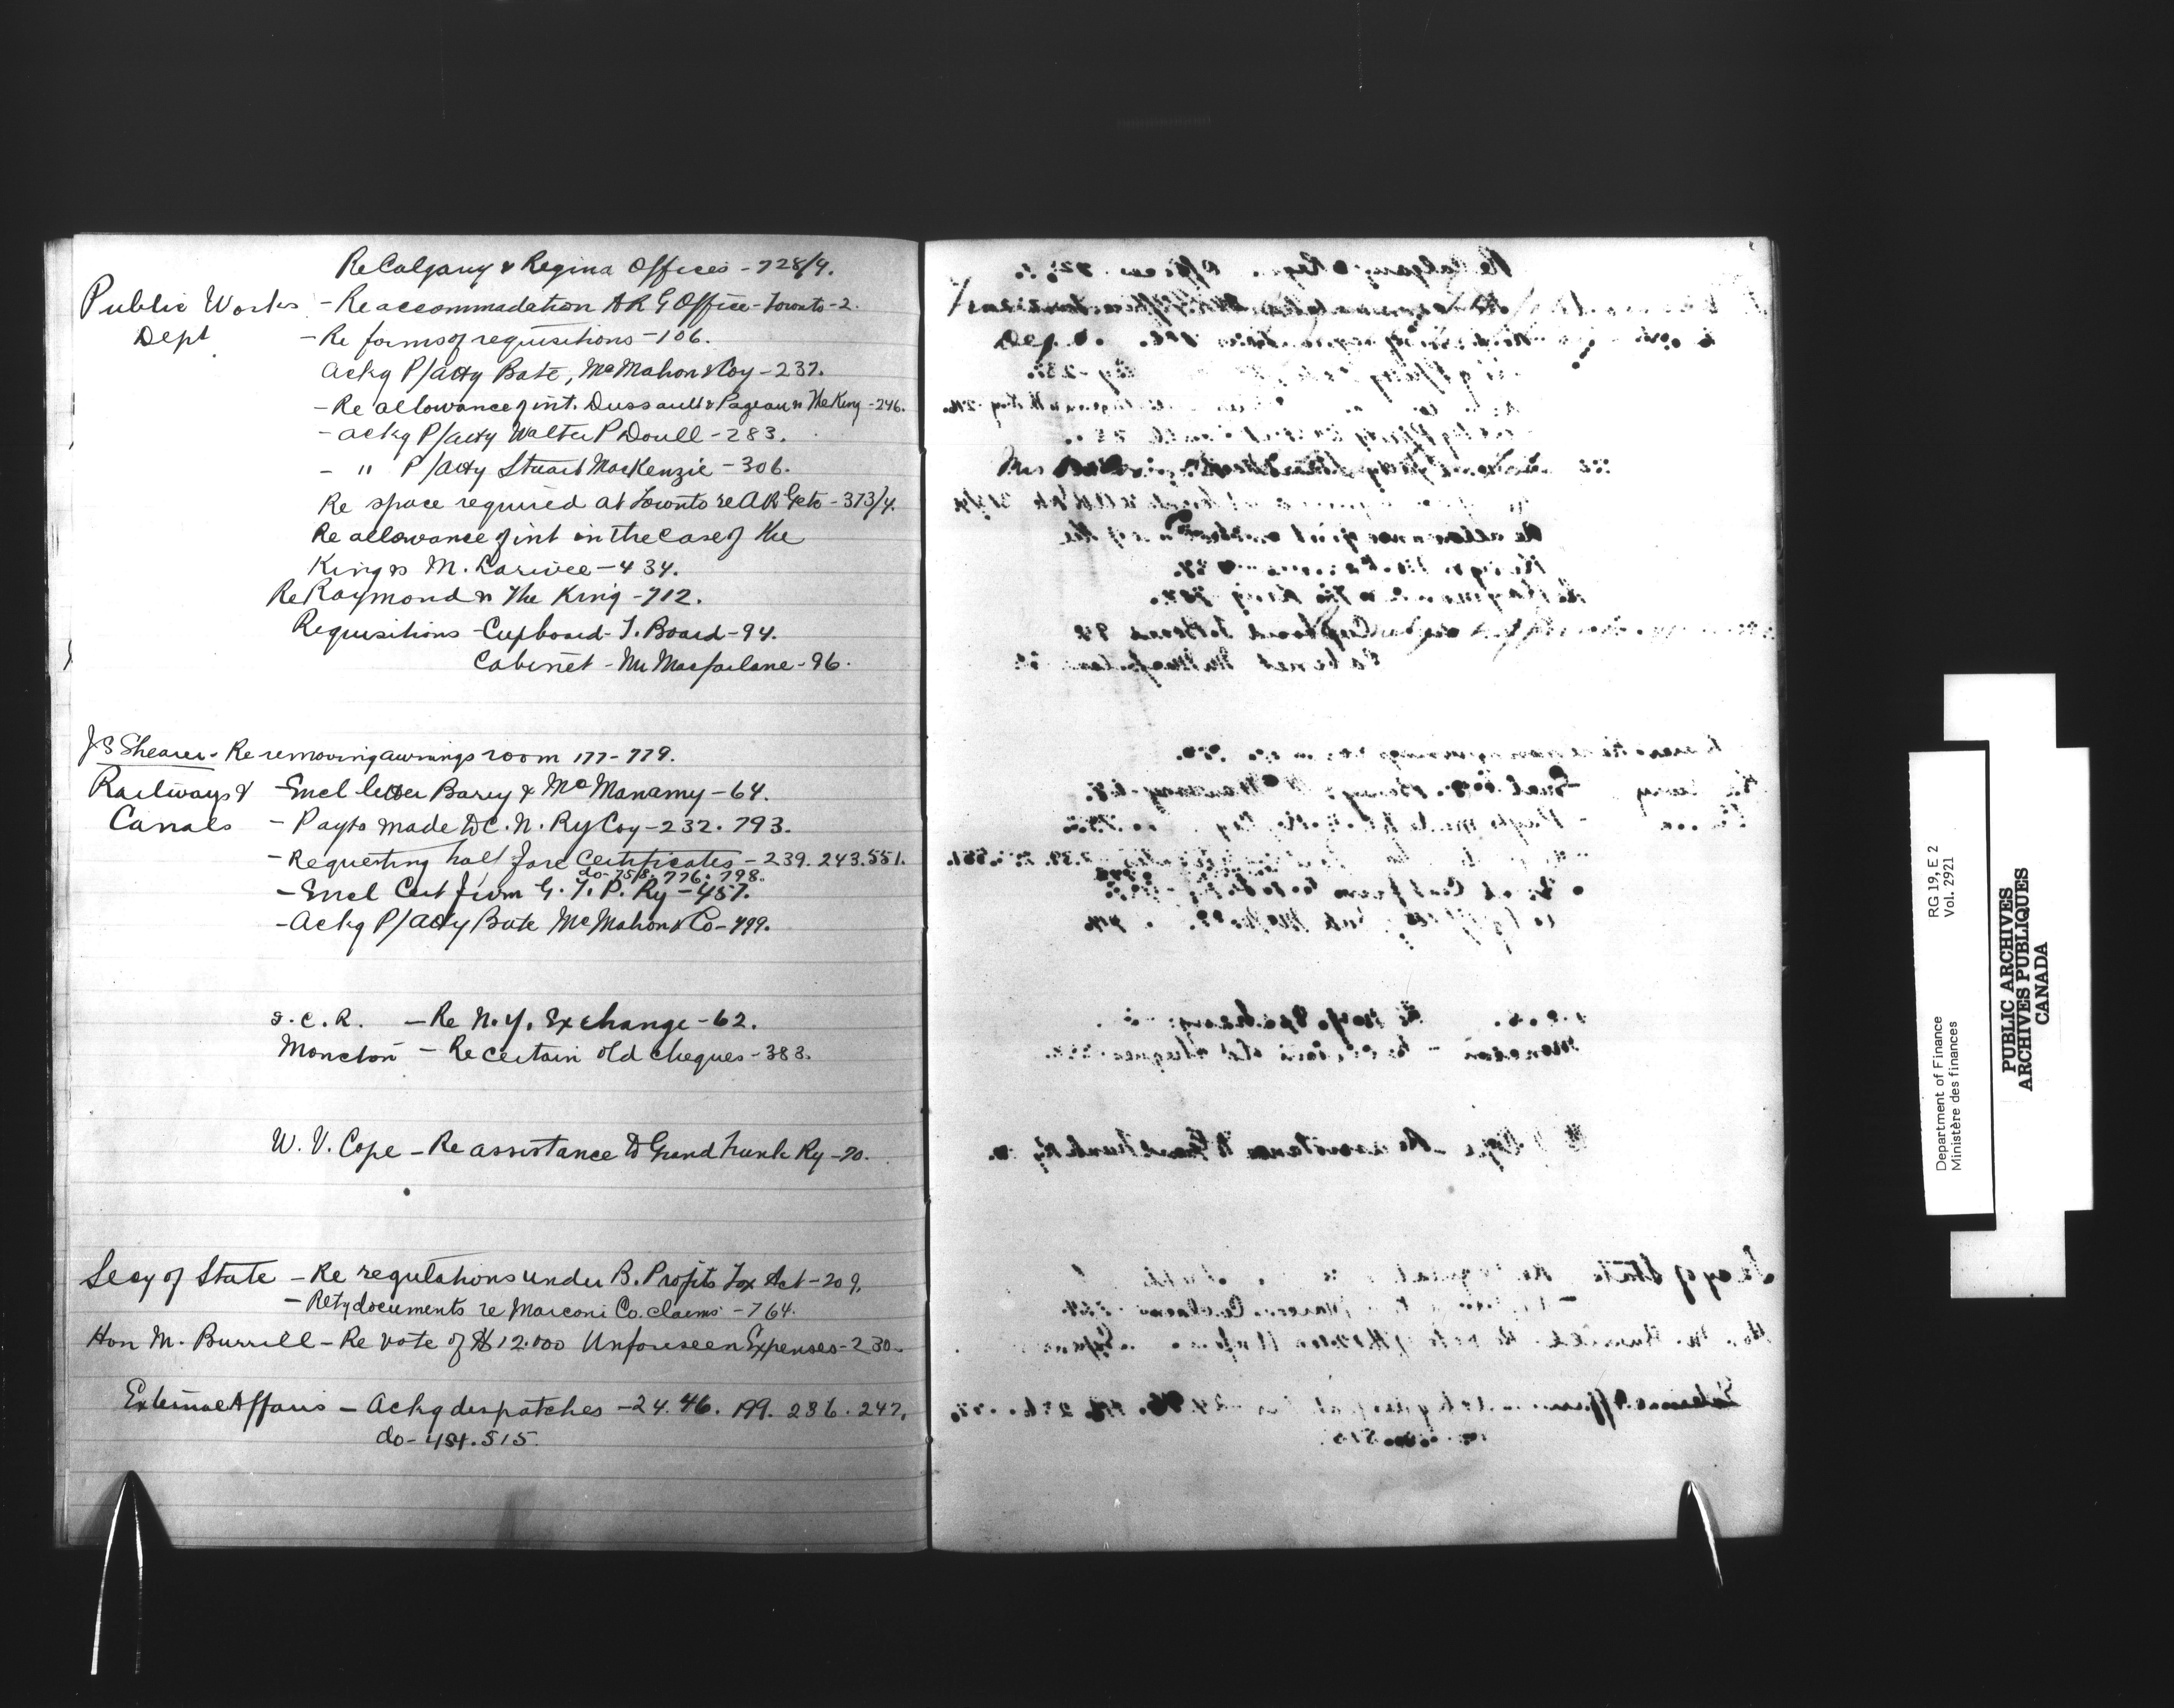 Re Calgary & Regina Offices - 728/9.
Public Works - Re accommodation A R G Office - Toronto - 2.
Dept - Re forms of requisitions - 106.
Ackg P/atty Bate, McMahon & Coy - 237.
- Re allowance of int. Dussault & Pageau vs The King - 246.
- Ackg P/atty Walter P Doull - 283.
- " P/atty Stuart MacKenzie - 306.
Re space required at Toronto re A R G - 373/4.
Re allowance of int in the case of the
King vs M. Larivee - 434.
Re Raymond vs The King - 712.
Requisitions - Cupboard - T. Board - 94.
Cabinet - Mr Macfarlane - 96.
J S Shearer - Re removing awnings room 177 - 779.
Railways & - Encl letter Barry & McManamy - 64.
Canals - Payts made to C. N. Ry Coy - 232. 793.
- Requesting half fare certificates - 239. 243. 551.
do - 758. 776. 798.
- Encl Cert from G. T. P. Ry - 457.
- Ackg P/atty Bate McMahon & Co - 499.
I. C. R. - Re N. Y. Exchange - 62.
Moncton - Re certain old cheques - 383.
W. V. Cope - Re assistance to Grand Trunk Ry - 70.
Secy of State - Re regulations under B. Profits Tax Act - 209.
- Retg documents re Marconi Co. claims - 764.
Hon M. Burrell - Re vote of $12.000 Unforeseen Expenses - 230.
External Affairs - Ackg despatches - 24. 46. 199. 236. 247.
do - 484. 515.
RG 19, E 2
Vol. 2921
Department of Finance
Ministère des finances
PUBLIC ARCHIVES
ARCHIVES PUBLIQUES
CANADA